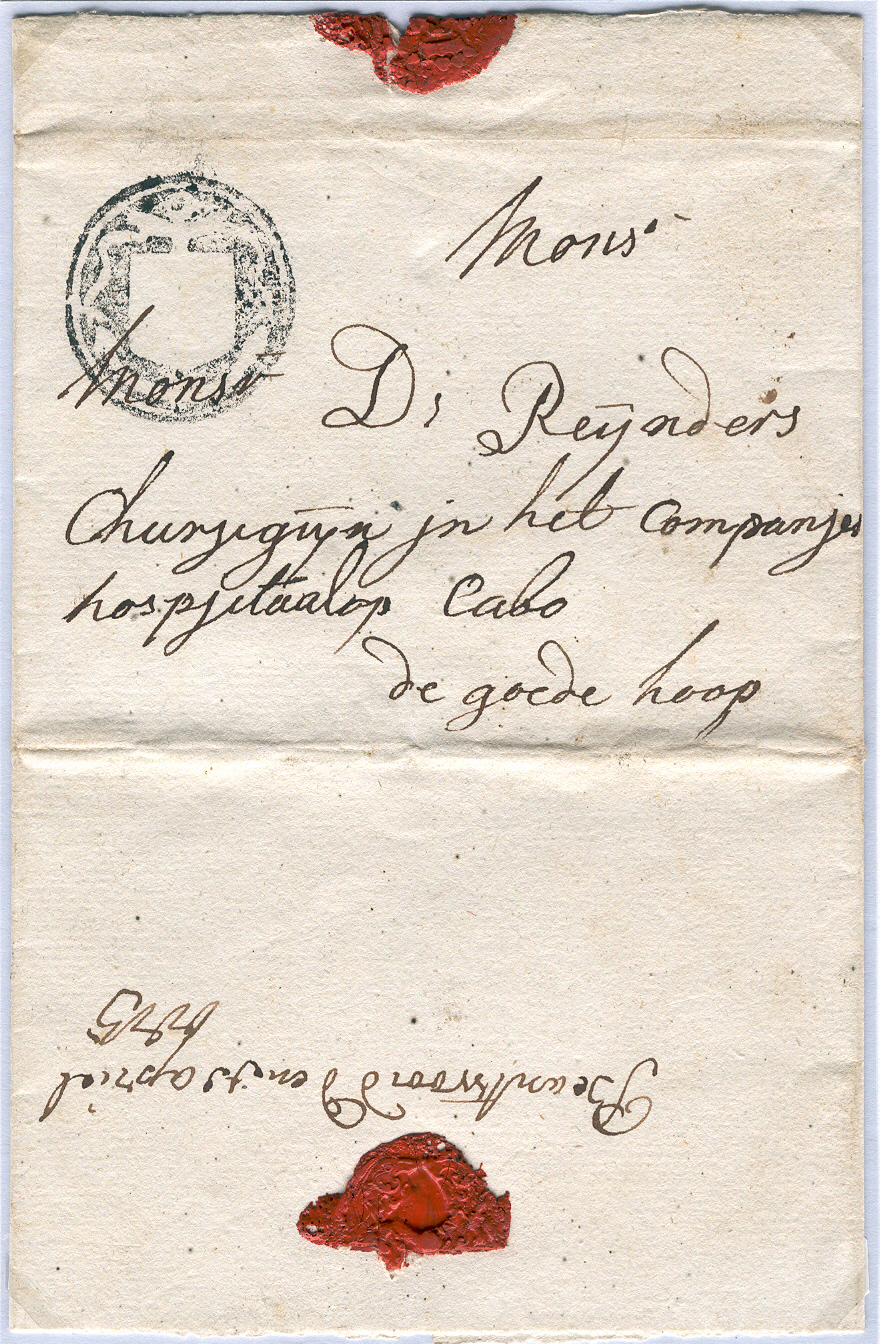 Monsr
Monsr Ds Reijnders
Churjegijn jn het Companjes
hospjetaal op Cabo
de goede hoop
Beantwoord den apriel